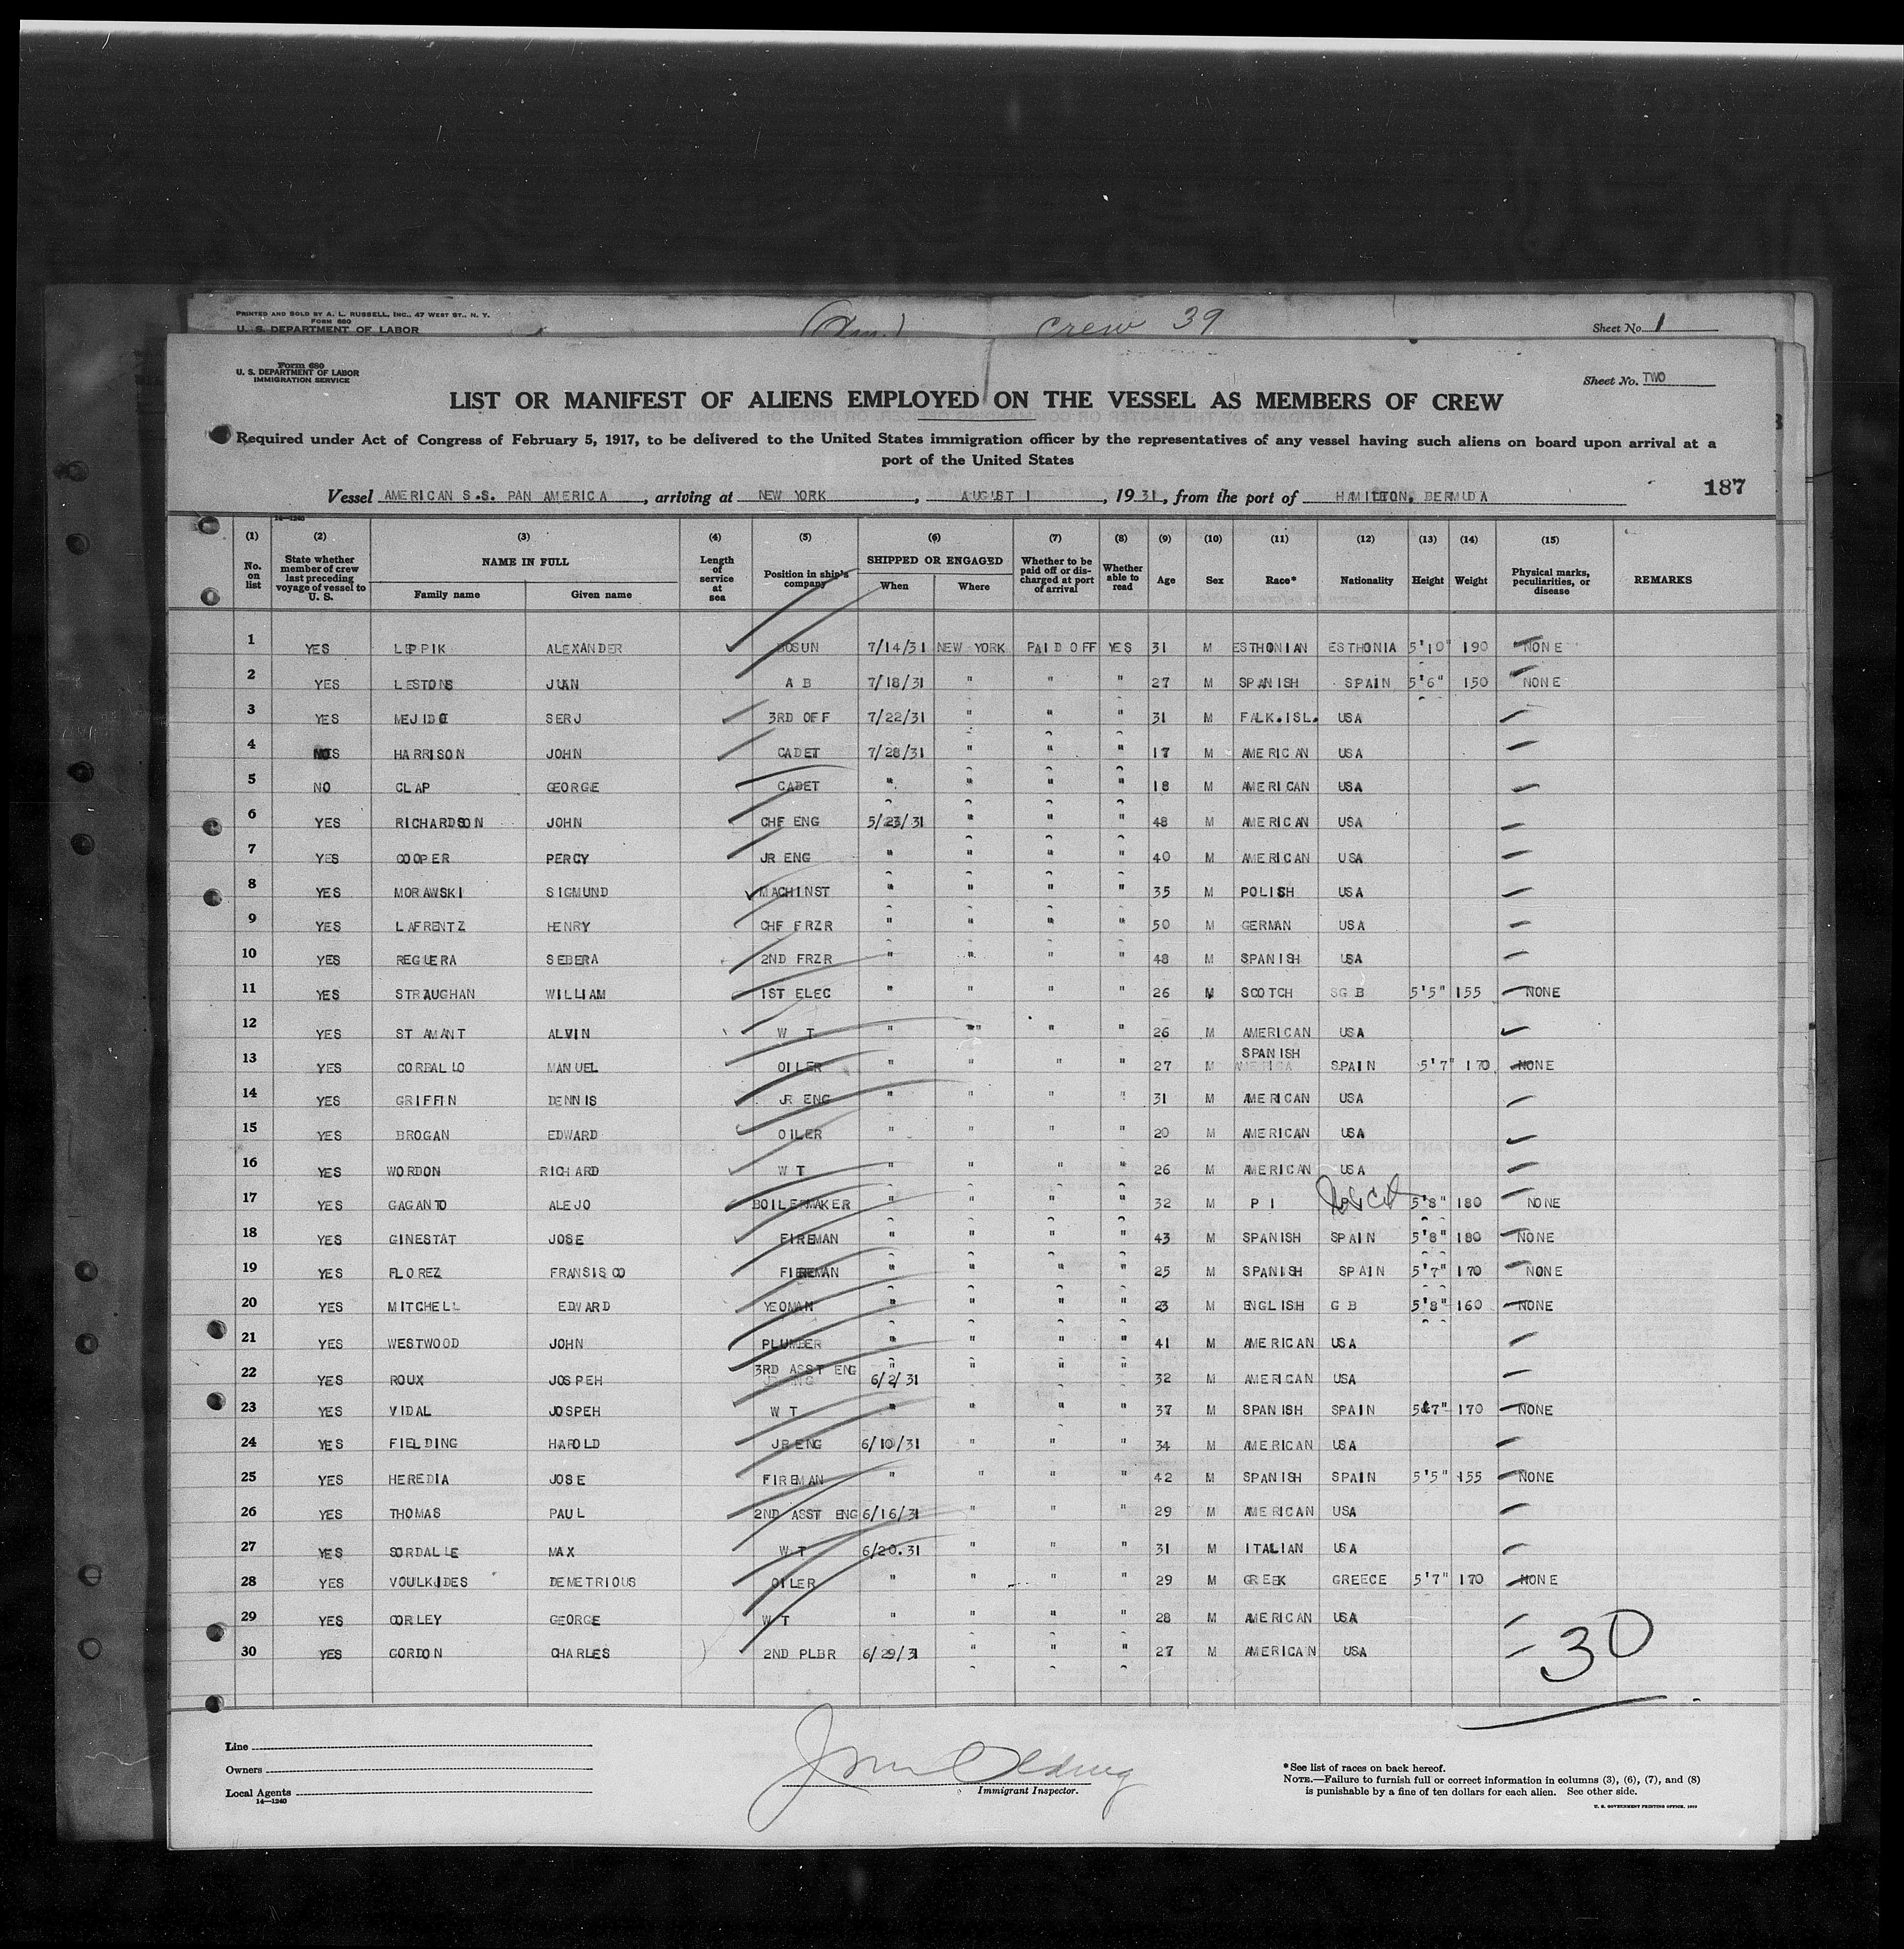 PRINTED AND SOLD BY A. L. RUSSELL, INC., 47 WEST ST., N. Y.
FORM 680
U. S. DEPARTMENT OF LABOR
Crew 39
Sheet No. 1
Form 680
U. S. DEPARTMENT OF LABOR
IMMIGRATION SERVICE
Sheet No. TWO
LIST OR MANIFEST OF ALIENS EMPLOYED ON THE VESSEL AS MEMBERS OF CREW
Required under Act of Congress of February 5, 1917, to be delivered to the United States immigration officer by the representatives of any vessel having such aliens on board upon arrival at a
port of the United States
Vessel AMERICAN S.S. PAN AMERICA, arriving at NEW YORK, AUGUST 1, 1931, from the port of HAMILTON, BERMUDA
187
14—1240
(1) (2) (3) (4) (5) (6) (7) (8) (9) (10) (11) (12) (13) (14) (15)
No. on list State whether member of crew last preceding voyage of vessel to U. S. NAME IN FULL Family name Given name Length of service at sea Position in ship's company SHIPPED OR ENGAGED When Where Whether to be paid off or discharged at port of arrival Whether able to read Age Sex Race* Nationality Height Weight Physical marks, peculiarities, or disease REMARKS
1 YES LEPPIK ALEXANDER BOSUN 7/14/31 NEW YORK PAID OFF YES 31 M ESTHONIAN ESTHONIA 5'10" 190 NONE
2 YES LESTONS JUAN A B 7/18/31 " " " 27 M SPANISH SPAIN 5'6" 150 NONE
3 YES MEJIDO SERJ 3RD OFF 7/22/31 " " " 31 M FALK.ISL. USA
4 HARRISON JOHN CADET 7/28/31 " " " 17 M AMERICAN USA
5 NO CLAP GEORGE CADET " " " " 18 M AMERICAN USA
6 YES RICHARDSON JOHN CHF ENG 5/23/31 " " " 48 M AMERICAN USA
7 YES COOPER PERCY JR ENG " " " " 40 M AMERICAN USA
8 YES MORAWSKI SIGMUND MACHINST " " " " 35 M POLISH USA
9 YES LAFRENTZ HENRY CHF FRZR " " " " 50 M GERMAN USA
10 YES REGUERA SEBERA 2ND FRZR " " " " 48 M SPANISH USA
11 YES STRAUGHAN WILLIAM 1ST ELEC " " " " 26 M SCOTCH GB 5'5" 155 NONE
12 YES ST AMANT ALVIN W T " " " " 26 M AMERICAN USA
13 YES CORBALLO MANUEL OILER " " " " 27 M SPANISH SPAIN 5'7" 170 NONE
14 YES GRIFFIN DENNIS JR ENG " " " " 31 M AMERICAN USA
15 YES BROGAN EDWARD OILER " " " " 20 M AMERICAN USA
16 YES WORDON RICHARD W T " " " " 26 M AMERICAN USA
17 YES GAGANTO ALEJO BOILERMAKER " " " " 32 M P I 5'8" 180 NONE
18 YES GINESTAT JOSE FIREMAN " " " " 43 M SPANISH SPAIN 5'8" 180 NONE
19 YES FLOREZ FRANSISCO FIREMAN " " " " 25 M SPANISH SPAIN 5'7" 170 NONE
20 YES MITCHELL EDWARD YEOMAN " " " " 23 M ENGLISH G B 5'8" 160 NONE
21 YES WESTWOOD JOHN PLUMBER " " " " 41 M AMERICAN USA
22 YES ROUX JOSPEH 3RD ASST ENG 6/2/31 " " " 32 M AMERICAN USA
23 YES VIDAL JOSPEH W T " " " " 37 M SPANISH SPAIN 5'7" 170 NONE
24 YES FIELDING HAROLD JR ENG 6/10/31 " " " 34 M AMERICAN USA
25 YES HEREDIA JOSE FIREMAN " " " " 42 M SPANISH SPAIN 5'5" 155 NONE
26 YES THOMAS PAUL 2ND ASST ENG 6/16/31 " " " 29 M AMERICAN USA
27 YES SORDALLE MAX W T 6/20.31 " " " 31 M ITALIAN USA
28 YES VOULKIDES DEMETRIOUS OILER " " " " 29 M GREEK GREECE 5'7" 170 NONE
29 YES CORLEY GEORGE W T " " " " 28 M AMERICAN USA
30 YES GORDON CHARLES 2ND PLBR 6/29/31 " " " 27 M AMERICAN USA
30
Line
Owners
Local Agents
14—1240
Immigrant Inspector.
*See list of races on back hereof.
NOTE.—Failure to furnish full or correct information in columns (3), (6), (7), and (8)
is punishable by a fine of ten dollars for each alien. See other side.